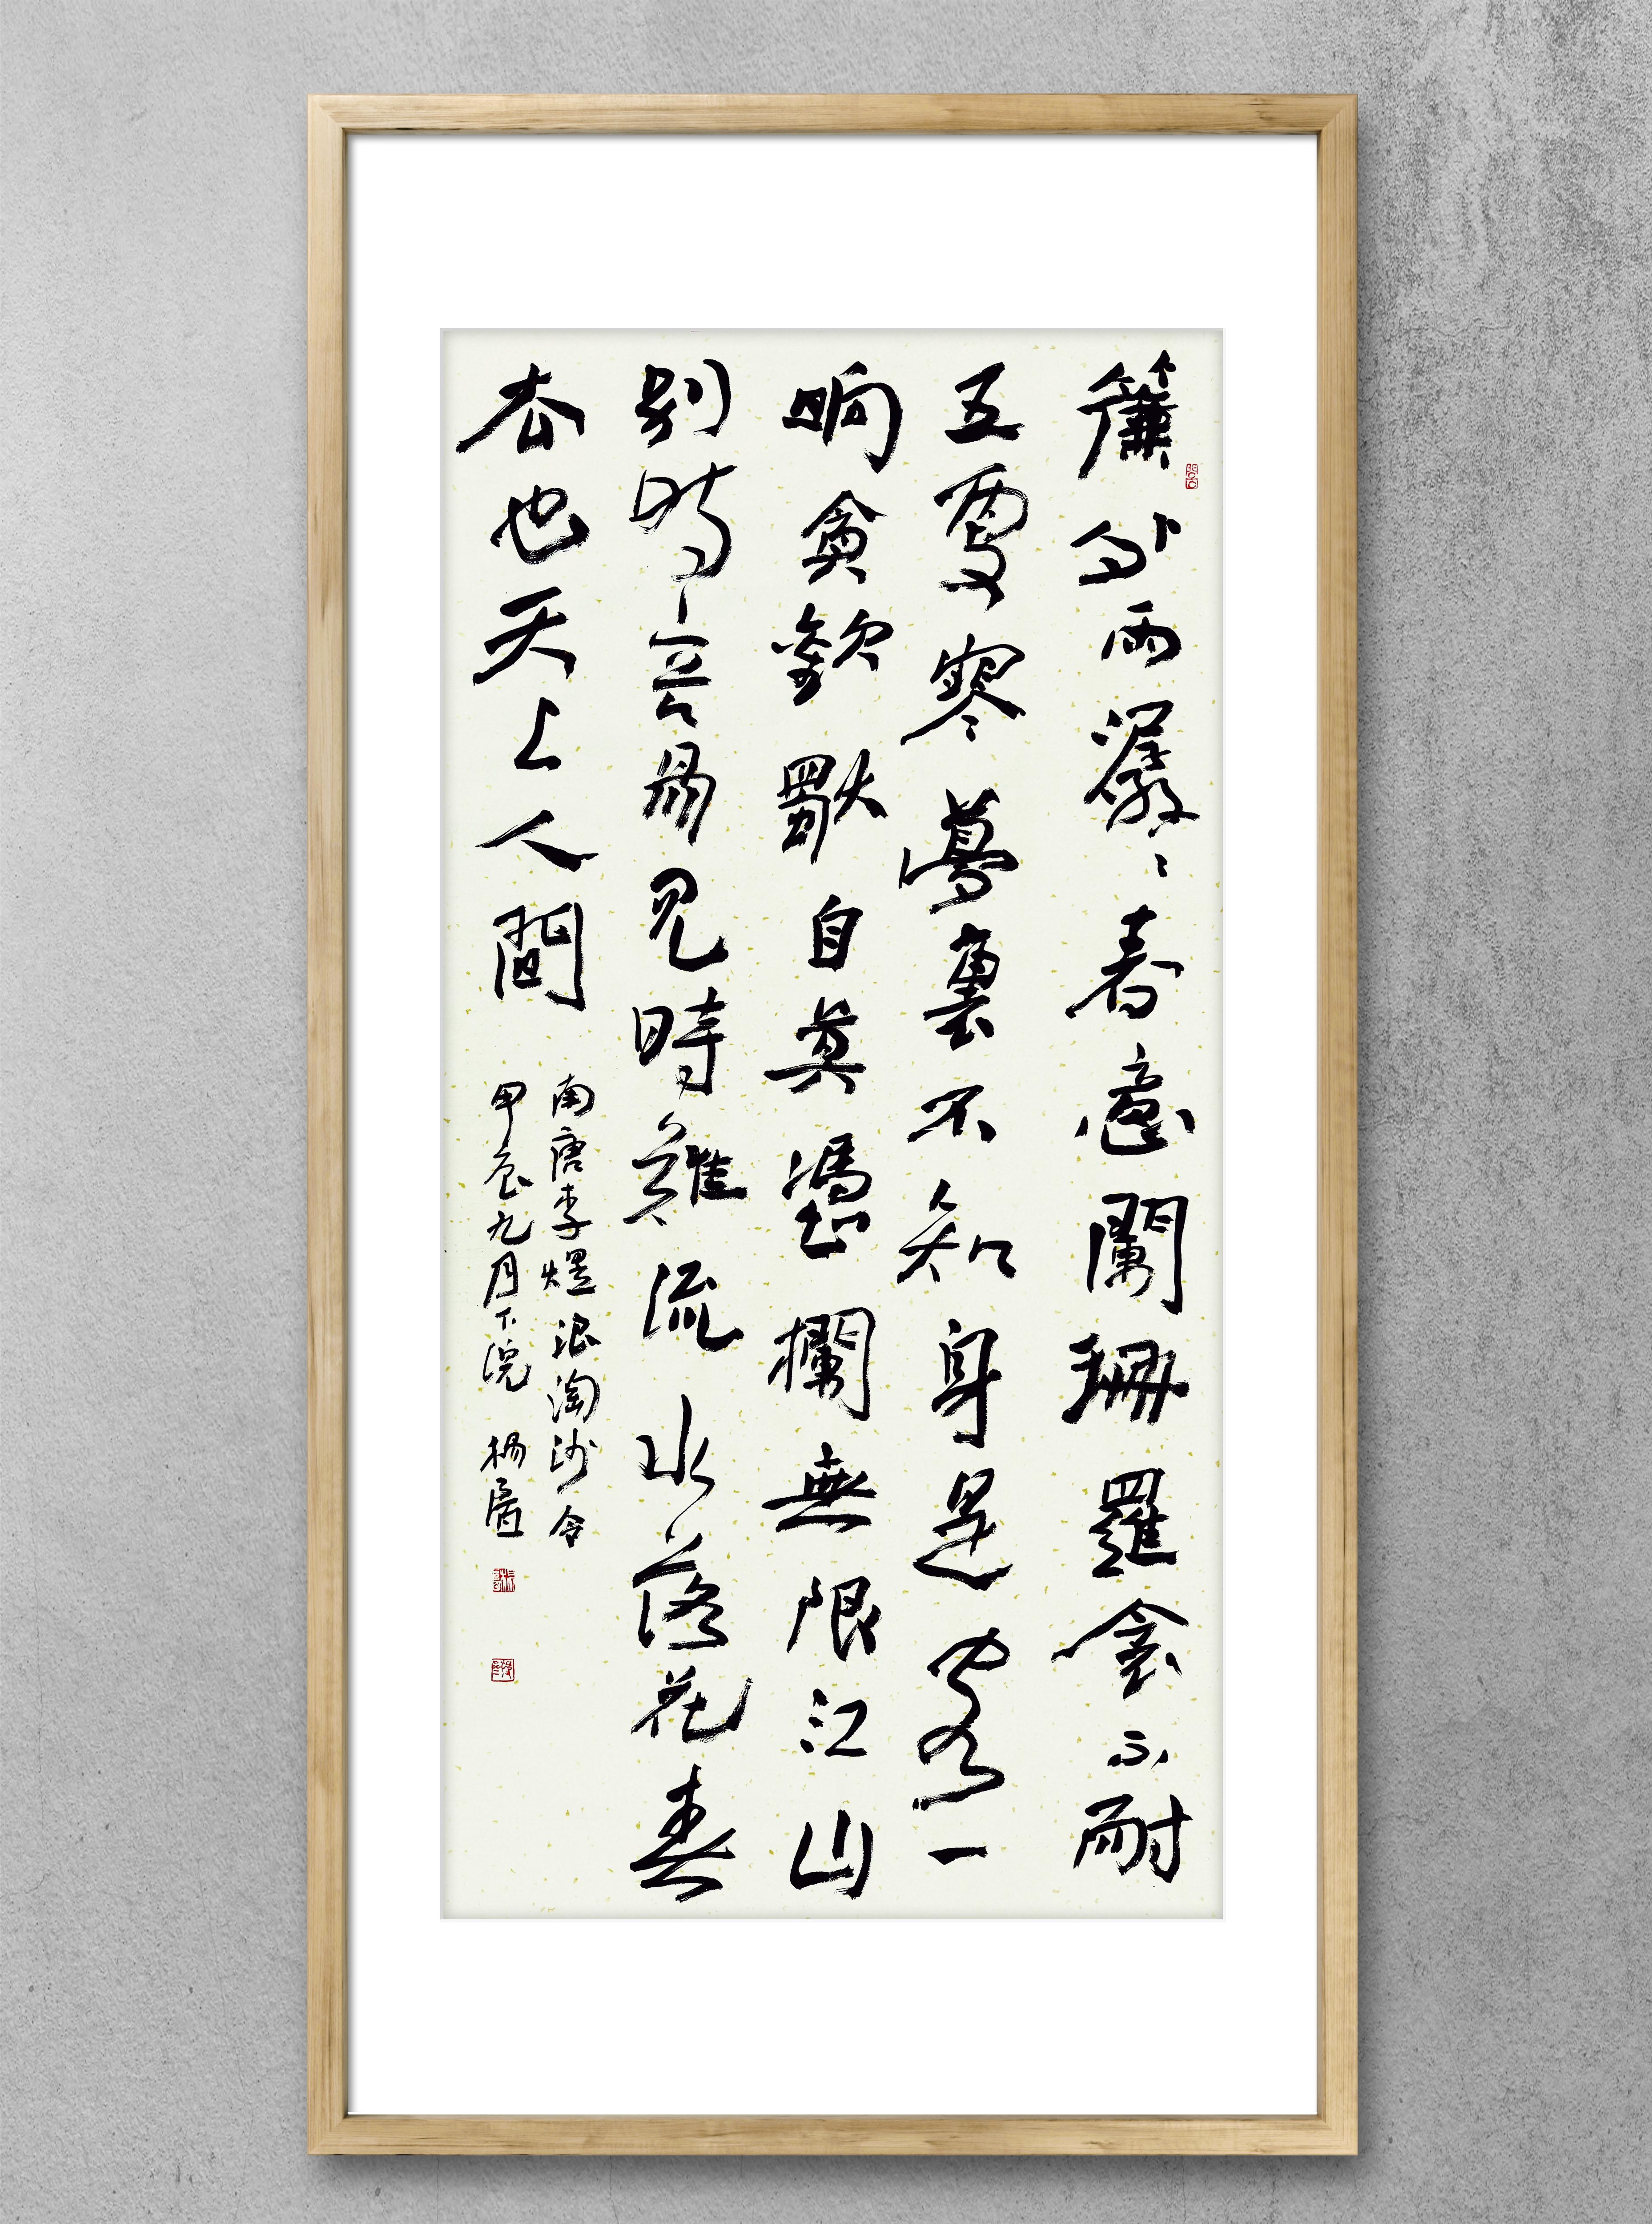 簾外雨潺〻春意闌珊羅衾不耐
五更寒夢裏不知身是客一
晌貪歡獨自莫憑欄無限江山
別時容易見時難流水落花春
去也天上人間
南唐李煜浪淘沙令
甲辰九月下浣 楊